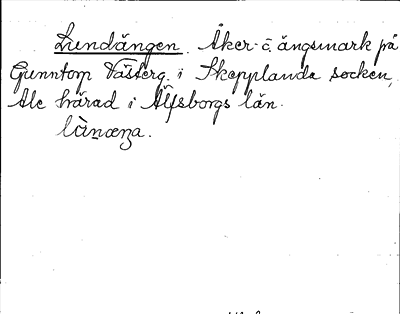 Lundängen. Åker- o. ängsmark på
Gunntorp Västerg. i Skepplanda socken,
Ale härad i Älfsborgs län.